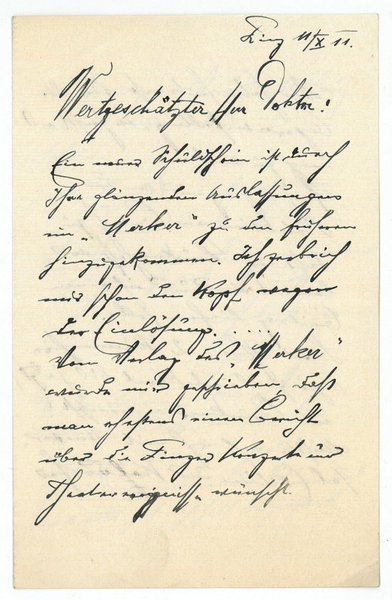 Linz 11/X 11.
Wertgeschätzter Herr Doktor!
Ein neuer Schuldschein ist durch
Ihre glänzenden Auslassungen
im „Merker“ zu den früheren
hinzugekommen. Ich zerbrich
mir schon den Kopf wegen
der Einlösung. . . . . .
Vom Verlag des „Merker“
wurde mir geschrieben, daß
man ehestens einen Bericht
über die Linzer Konzert und
Theaterereignisse wünscht.